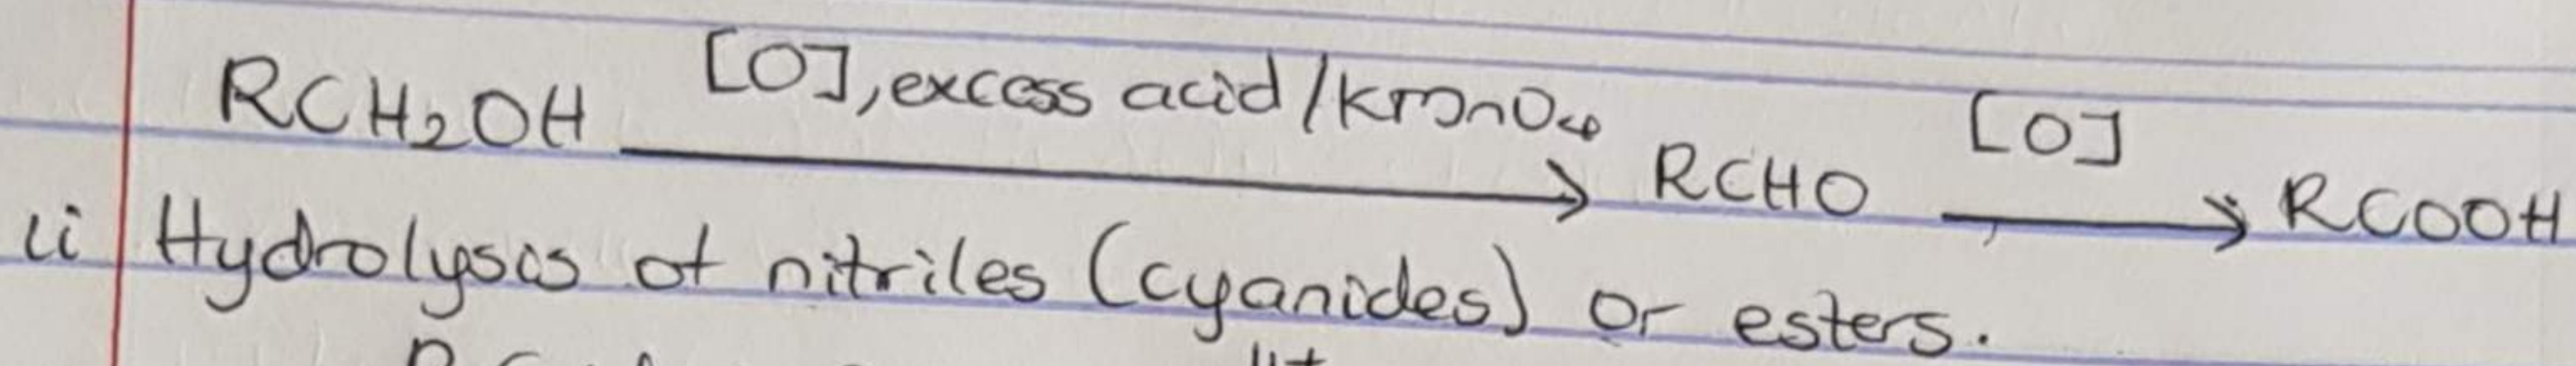 RCH₂OH [O], excess acid/KMnO₄ → RCHO [O] → RCOOH
ii Hydrolysis of nitriles (cyanides) or esters.